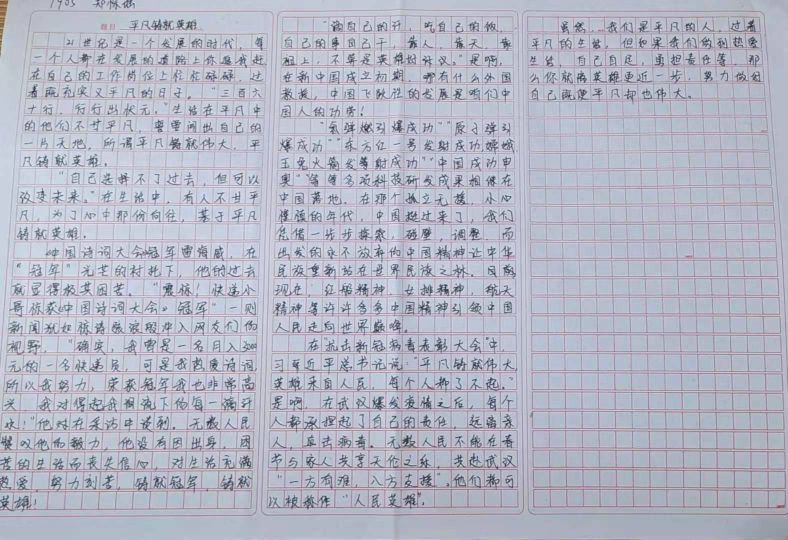 1905
题目 平凡铸就英雄
21世纪是一个发展的时代，每
一个人都在发展的道路上你追我赶
在自己的工作岗位上忙忙碌碌，过
着既充实又平凡的日子。"三百六
十行，行行出状元。"生活在平凡中
的他们不甘平凡，要闯出自己的
一片天地，所谓平凡铸就伟大，平
凡铸就英雄。
"自己选择不了过去，但可以
改变未来。"在生活中，有人不甘平
凡，为了心中那份向往，甚于平凡
铸就英雄。
《中国诗词大会》冠军雷海威，在
"冠军"光芒的衬托下，他的过去
就显得极其困苦。"震惊！快递小
哥你获《中国诗词大会》冠军"一则
新闻犹如惊涛骇浪般冲入网友们的
视野，"确实，我曾是一名月入3000
元的一名快递员，可是我热爱诗词
所以我努力，荣获冠军我也非常高
兴，我对得起我所流下的每一滴汗
水！"他对在采访中谈到。无数人民
赞叹他的毅力，他没有因出身，困
苦的生活而丧失信心，对生活充满
热爱，努力刻苦，铸就冠军，铸就
英雄！
"滴自己的汗，吃自己的饭，
自己的事自己干，靠人，靠天，靠
祖上，不算是英雄好汉。"是啊，
在新中国成立初期，哪有什么外国
教授，中国飞跃性的发展是咱们中
国人的功劳！
"氢弹燃引爆成功""原子弹引
爆成功""东方红一号发射成功嫦娥
玉兔火箭发射成功""中国成功申
奥"等等多项科技研发成果相继在
中国落地，在那个孤立无援，小心
谨慎的年代，中国挺过来了，我们
凭借一步步探索，碰壁，调整，而
出发的永不放弃的中国精神让中华
民族重新站在世界民族之林。
现在，红船精神，女排精神，航天
精神等许许多多中国精神引领中国
人民走向世界巅峰。
在"抗击新冠病毒表彰大会"中
习近平总书记说："平凡铸就伟大
英雄来自人民，每个人都了不起。"
是啊，在武汉爆发疫情之后，每个
人都承担起了自己的责任，远离亲
人，直击病毒。无数人民不能在春
节与家人共享天伦之乐，共赴武汉
"一方有难，八方支援"。他们都可
以被称作"人民英雄"。
虽然，我们是平凡的人，过着
平凡的生活，但如果我们做到热爱
生活，自己自足，勇担责任等，那
么你就离英雄更近一步，努力做好
自己既便平凡却也伟大。